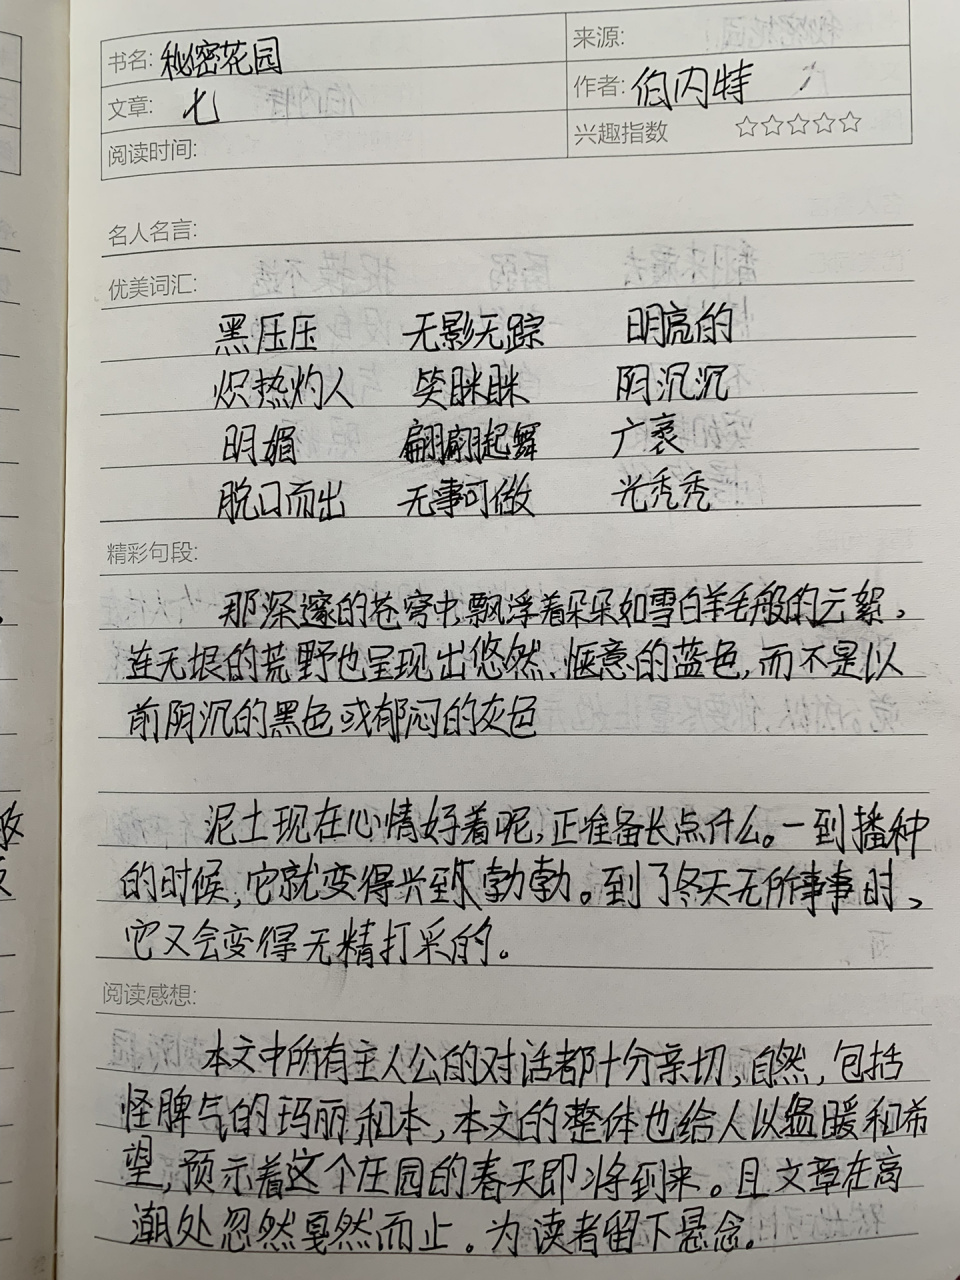 书名: 秘密花园
来源:
文章: 七
作者: 伯内特
阅读时间:
兴趣指数 ☆☆☆☆☆
名人名言:
优美词汇:
黑压压 无影无踪 明亮的
炽热灼人 笑眯眯 阴沉沉
明媚 翩翩起舞 广袤
脱口而出 无事可做 光秃秃
精彩句段:
那深邃的苍穹中,飘浮着朵朵如雪白羊毛般的云絮,
连无垠的荒野也呈现出悠然、惬意的蓝色,而不是以
前阴沉的黑色或郁闷的灰色
泥土现在心情好着呢,正准备长点什么。一到播种
的时候,它就变得兴致勃勃。到了冬天无所事事时,
它又会变得无精打采的。
阅读感想:
本文中所有主人公的对话都十分亲切,自然,包括
怪脾气的玛丽和本,本文的整体也给人以温暖和希
望,预示着这个庄园的春天即将到来。且文章在高
潮处忽然戛然而止。为读者留下悬念。